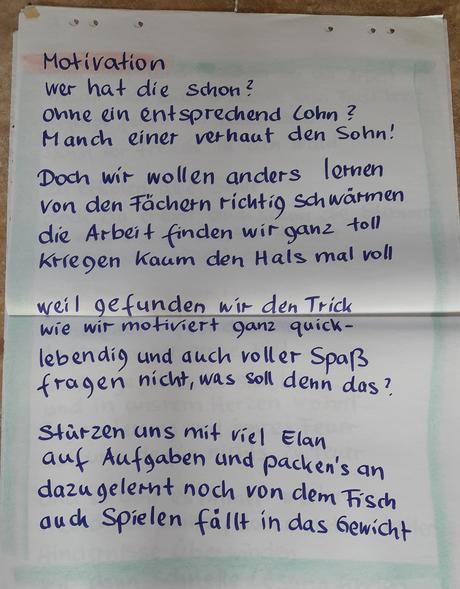 Motivation
wer hat die schon?
ohne ein entsprechend Lohn?
Manch einer verhaut den Sohn!
Doch wir wollen anders lernen
von den Fächern richtig schwärmen
die Arbeit finden wir ganz toll
kriegen kaum den Hals mal voll
weil gefunden wir den Trick
wie wir motiviert ganz quick-
lebendig und auch voller Spaß
fragen nicht, was soll denn das?
Stürzen uns mit viel Elan
auf Aufgaben und packen's an
dazugelernt noch von dem Fisch
auch Spielen fällt in das Gewicht